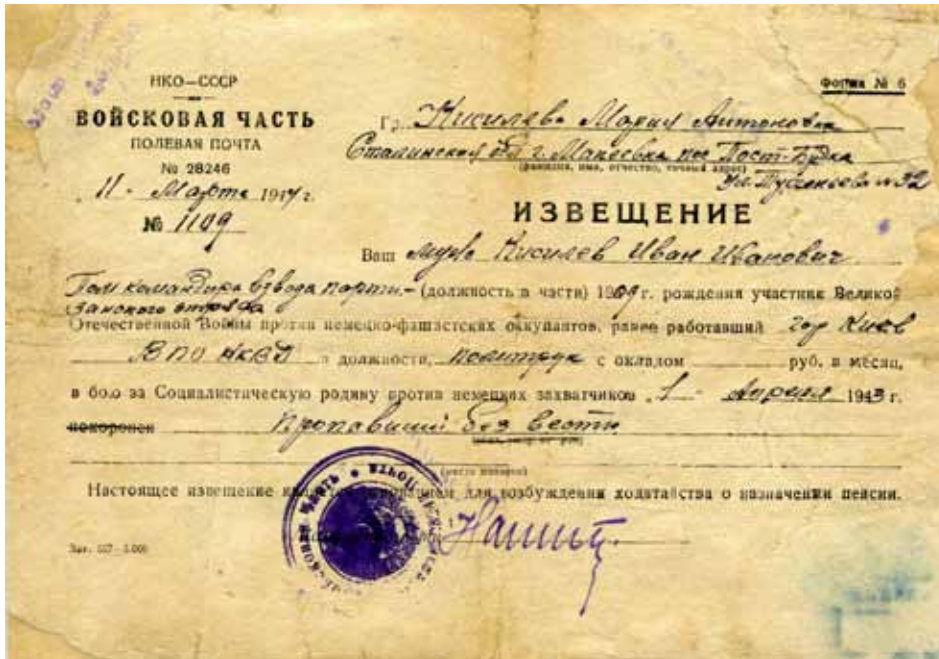 НКО—СССР
ВОЙСКОВАЯ ЧАСТЬ
ПОЛЕВАЯ ПОЧТА
№ 28246
11 - Марта 1944 г.
№ 1109
Форма № 6
Гр. Кисилева Мария Антоновна
Сталинская обл г. Макеевка пос Пост-Будка
(фамилия, имя, отчество, точный адрес)
ул. №32
ИЗВЕЩЕНИЕ
Ваш муж Кисилев Иван Иванович
Пом командира взвода парти- (должность в части) 1909 г. рождения участник Великой
занского отряда
Отечественной Войны против немецко-фашистских оккупантов, ранее работавший гор Киев
ВПО НКВД в должности, политрук с окладом руб. в месяц,
в бою за Социалистическую родину против немецких захватчиков „1 - апреля 1943 г.
похоронен пропавший без вести
Настоящее извещение является основанием для возбуждения ходатайства о назначении пенсии.